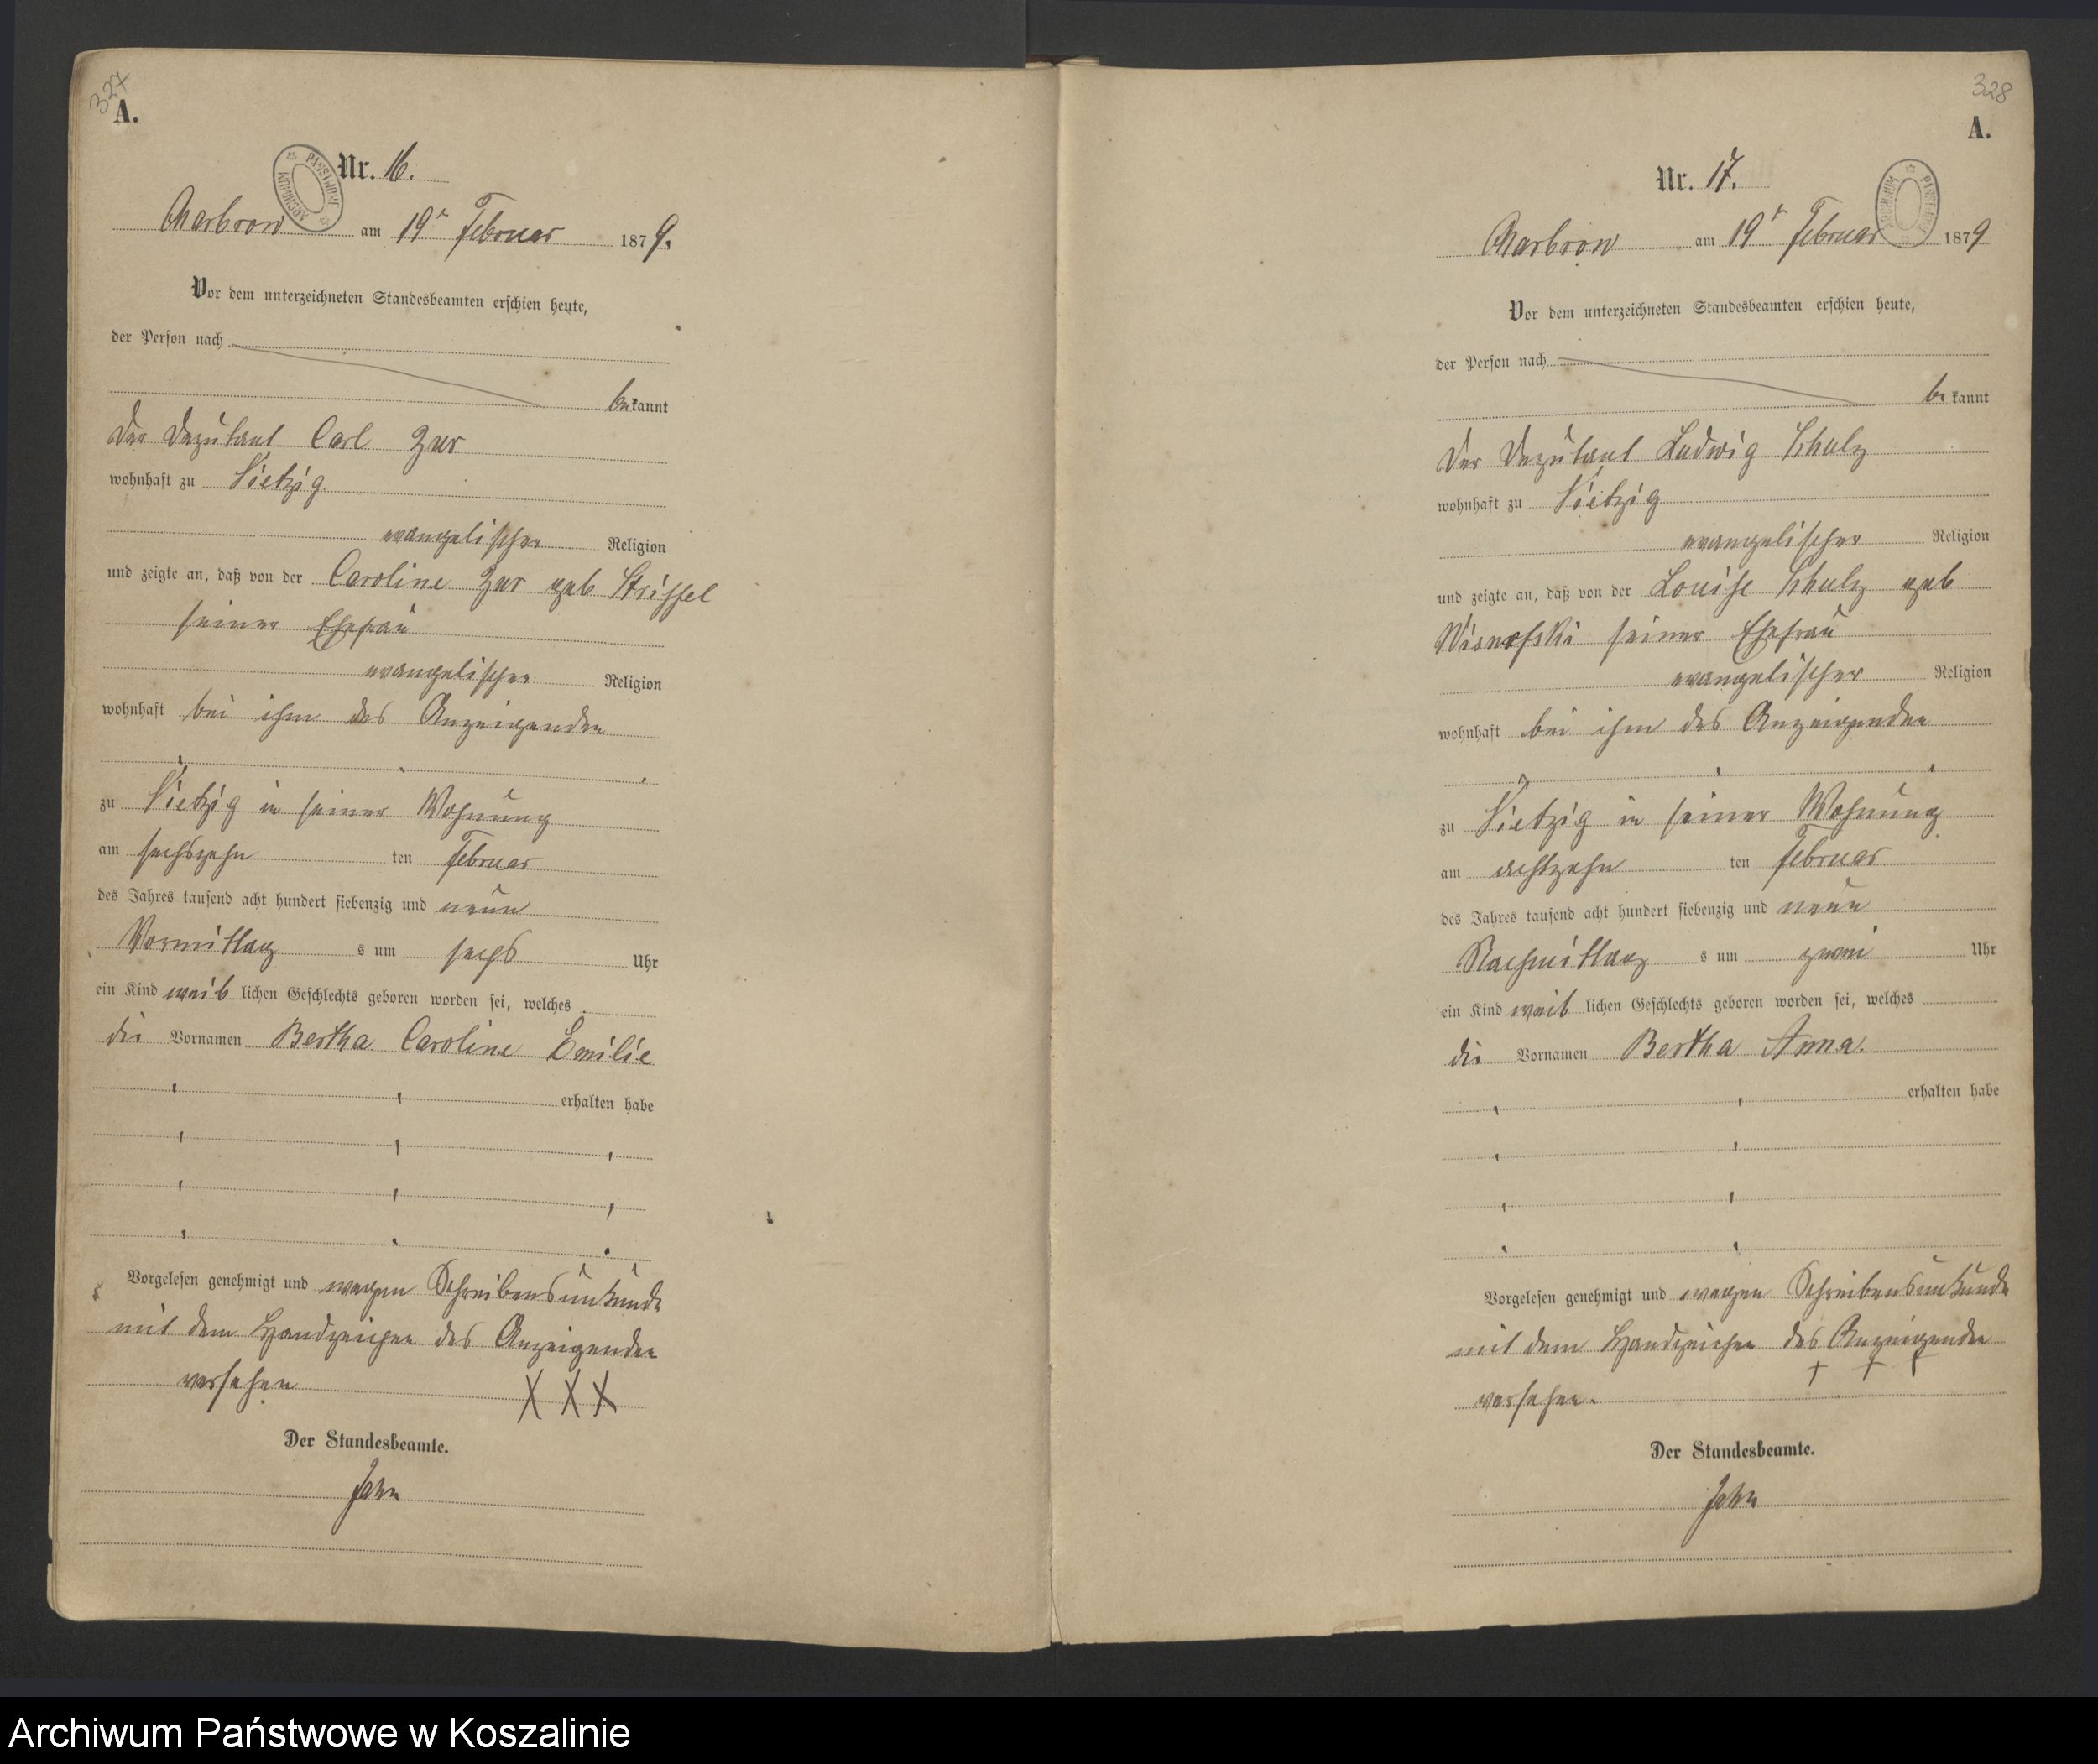 327
A.
Nr. 16.
ARCHIWUM PAŃSTWOWE
Charbrow am 19t Februar 1879.
Vor dem unterzeichneten Standesbeamten erschien heute,
der Person nach
bekannt
Der Deputant Carl Zur
wohnhaft zu Vietzig
evangelischer Religion
und zeigte an, daß von der Caroline Zur geb Striffel
seiner Ehefrau
evangelischer Religion
wohnhaft bei ihm des Anzeigenden
zu Vietzig in seiner Wohnung
am sechszehn ten Februar
des Jahres tausend acht hundert siebenzig und neun
Vormittag s um sechs Uhr
ein Kind weib lichen Geschlechts geboren worden sei, welches
die Vornamen Bertha Caroline Emilie
erhalten habe
Vorgelesen genehmigt und wegen Schreibensunkunde
mit dem Handzeichen des Anzeigenden
versehen XXX
Der Standesbeamte.
Jahn
328
A.
Nr. 17.
ARCHIWUM PAŃSTWOWE
Charbrow am 19t Februar 1879
Vor dem unterzeichneten Standesbeamten erschien heute,
der Person nach
be kannt
Der Deputant Ludwig Schulz
wohnhaft zu Vietzig
evangelischer Religion
und zeigte an, daß von der Louise Schulz geb
Wisnofski seiner Ehefrau
evangelischer Religion
wohnhaft bei ihm des Anzeigenden
zu Vietzig in seiner Wohnung
am achtzehn ten Februar
des Jahres tausend acht hundert siebenzig und neun
Nachmittag s um zwei Uhr
ein Kind weib lichen Geschlechts geboren worden sei, welches
die Vornamen Bertha Anna.
erhalten habe
Vorgelesen genehmigt und wegen Schreibensunkunde
mit dem Handzeichen des Anzeigenden
+ + +
versehen.
Der Standesbeamte.
Jahn
Archiwum Państwowe w Koszalinie